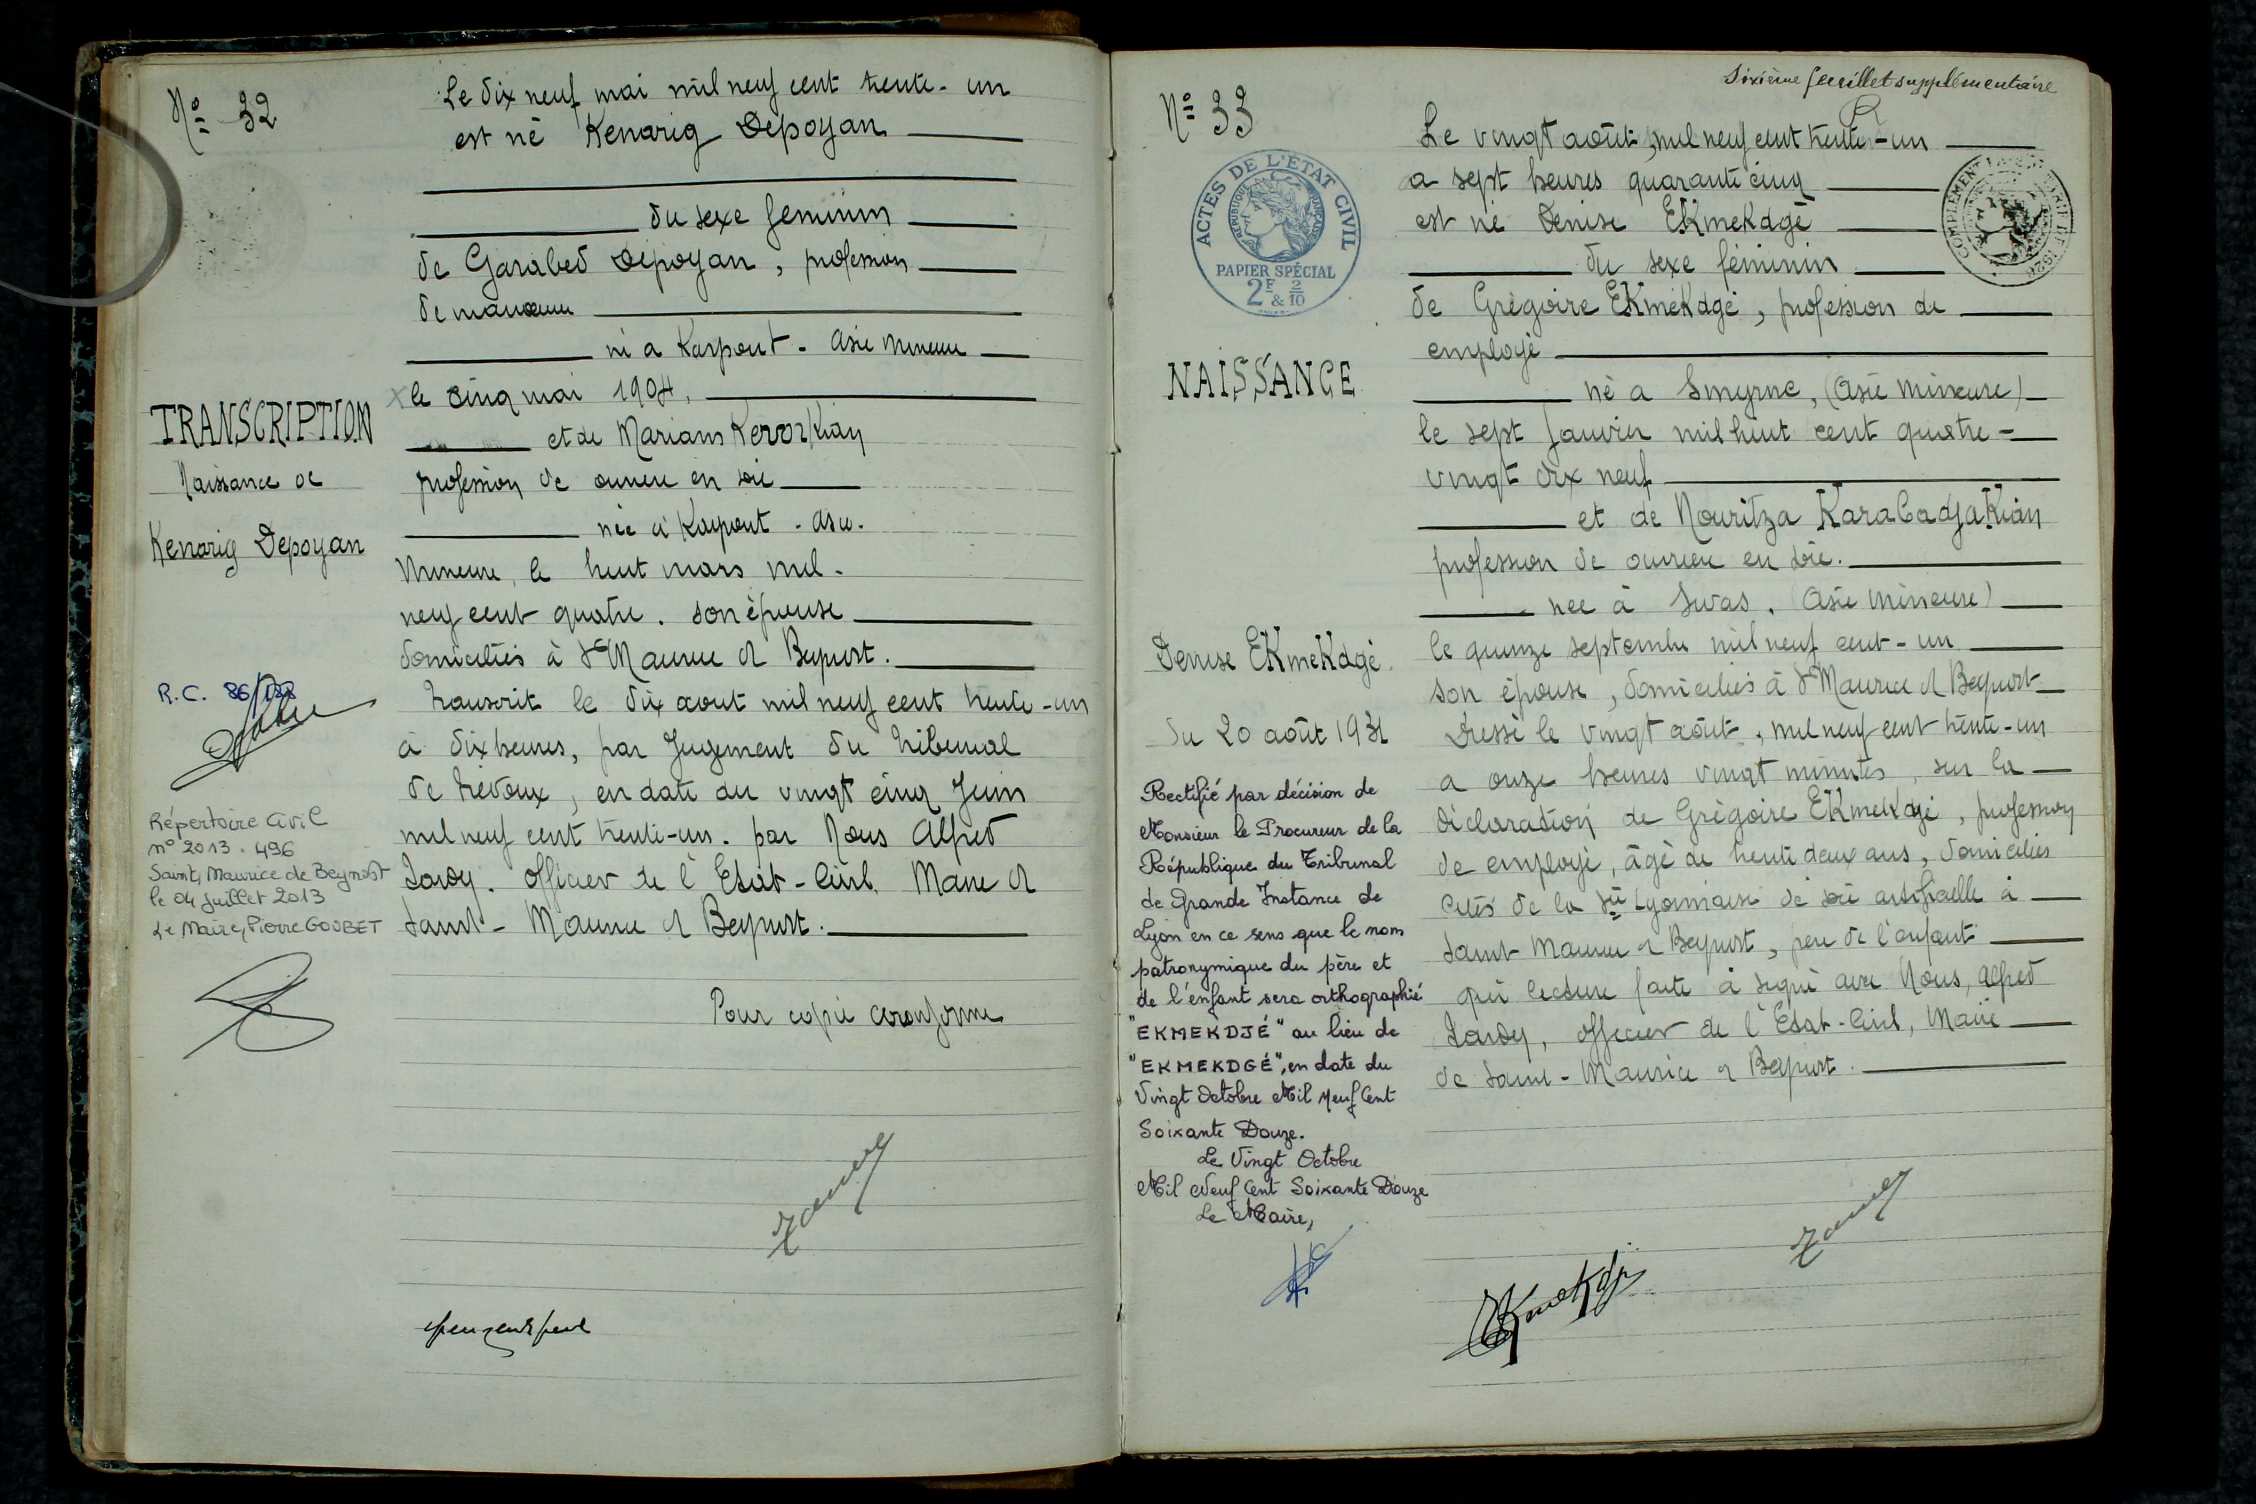 Nº 32
Le dix neuf mai mil neuf cent trente-un
est né Kenarig Depoyan
du sexe féminin
de Garabed Depoyan, profession
de manœuvre
né a Karpout - Asie Mineure
le cinq mai 1904,
et de Mariam Kevorkian
profession de ouvrière en soie
née à Karpout - Asie-
Mineure, le huit mars mil-
neuf cent quatre. son épouse
domiciliés à St Maurice de Beynost.
transcrit le dix aout mil neuf cent trente-un
à dix heures, par Jugement du tribunal
de Trévoux, en date du vingt cinq Juin
mil neuf cent trente-un. par Nous Alfred
Officier de l'Etat-Civil, Maire de
Saint-Maurice de Beynost.
Pour copie conforme
TRANSCRIPTION
Naissance de
Kenarig Depoyan
R.C. 86/
Répertoire Civil
nº 2013.496
Saint Maurice de Beynost
le 04 juillet 2013
Le Maire, Pierre GOUBET
Sixième feuillet supplémentaire
Nº 33
ACTES DE L'ÉTAT CIVIL
RÉPUBLIQUE FRANÇAISE
PAPIER SPÉCIAL
2F & 2/10
COMPLÉMENT
NAISSANCE
Denise EKmeKdgé
du 20 août 1931
Rectifié par décision de
Monsieur le Procureur de la
République du Tribunal
de Grande Instance de
Lyon en ce sens que le nom
patronymique du père et
de l'enfant sera orthographié
"EKMEKDJÉ" au lieu de
"EKMEKDGÉ", en date du
Vingt Octobre Mil Neuf Cent
Soixante Douze.
Le Vingt Octobre
Mil Neuf Cent Soixante Douze
Le Maire,
Le vingt août, mil neuf cent trente-un
a sept heures quarante cinq
est né Denise EKmeKdgé
du sexe féminin
de Grégoire EKmeKdgé, profession de
employé
né a Smyrne, (Asie Mineure)
le sept Janvier mil huit cent quatre-
vingt dix neuf
et de Nouritza KaraBadjaKian
profession de ouvrière en soie.
née à Sivas, (Asie Mineure)
le quinze septembre mil neuf cent-un
son épouse, domiciliés à St Maurice de Beynost
Dressé le vingt août, mil neuf cent trente-un
a onze heures vingt minutes, sur la
déclaration de Grégoire EKmeKdgé, profession
de employé, âgé de trente deux ans, domiciliés
cités de la Sté Lyonnaise de soie artificielle à
Saint Maurice de Beynost, père de l'enfant
qui lecture faite à signé avec Nous, Alfred
officier de l'Etat-Civil, Maire
de Saint-Maurice de Beynost.